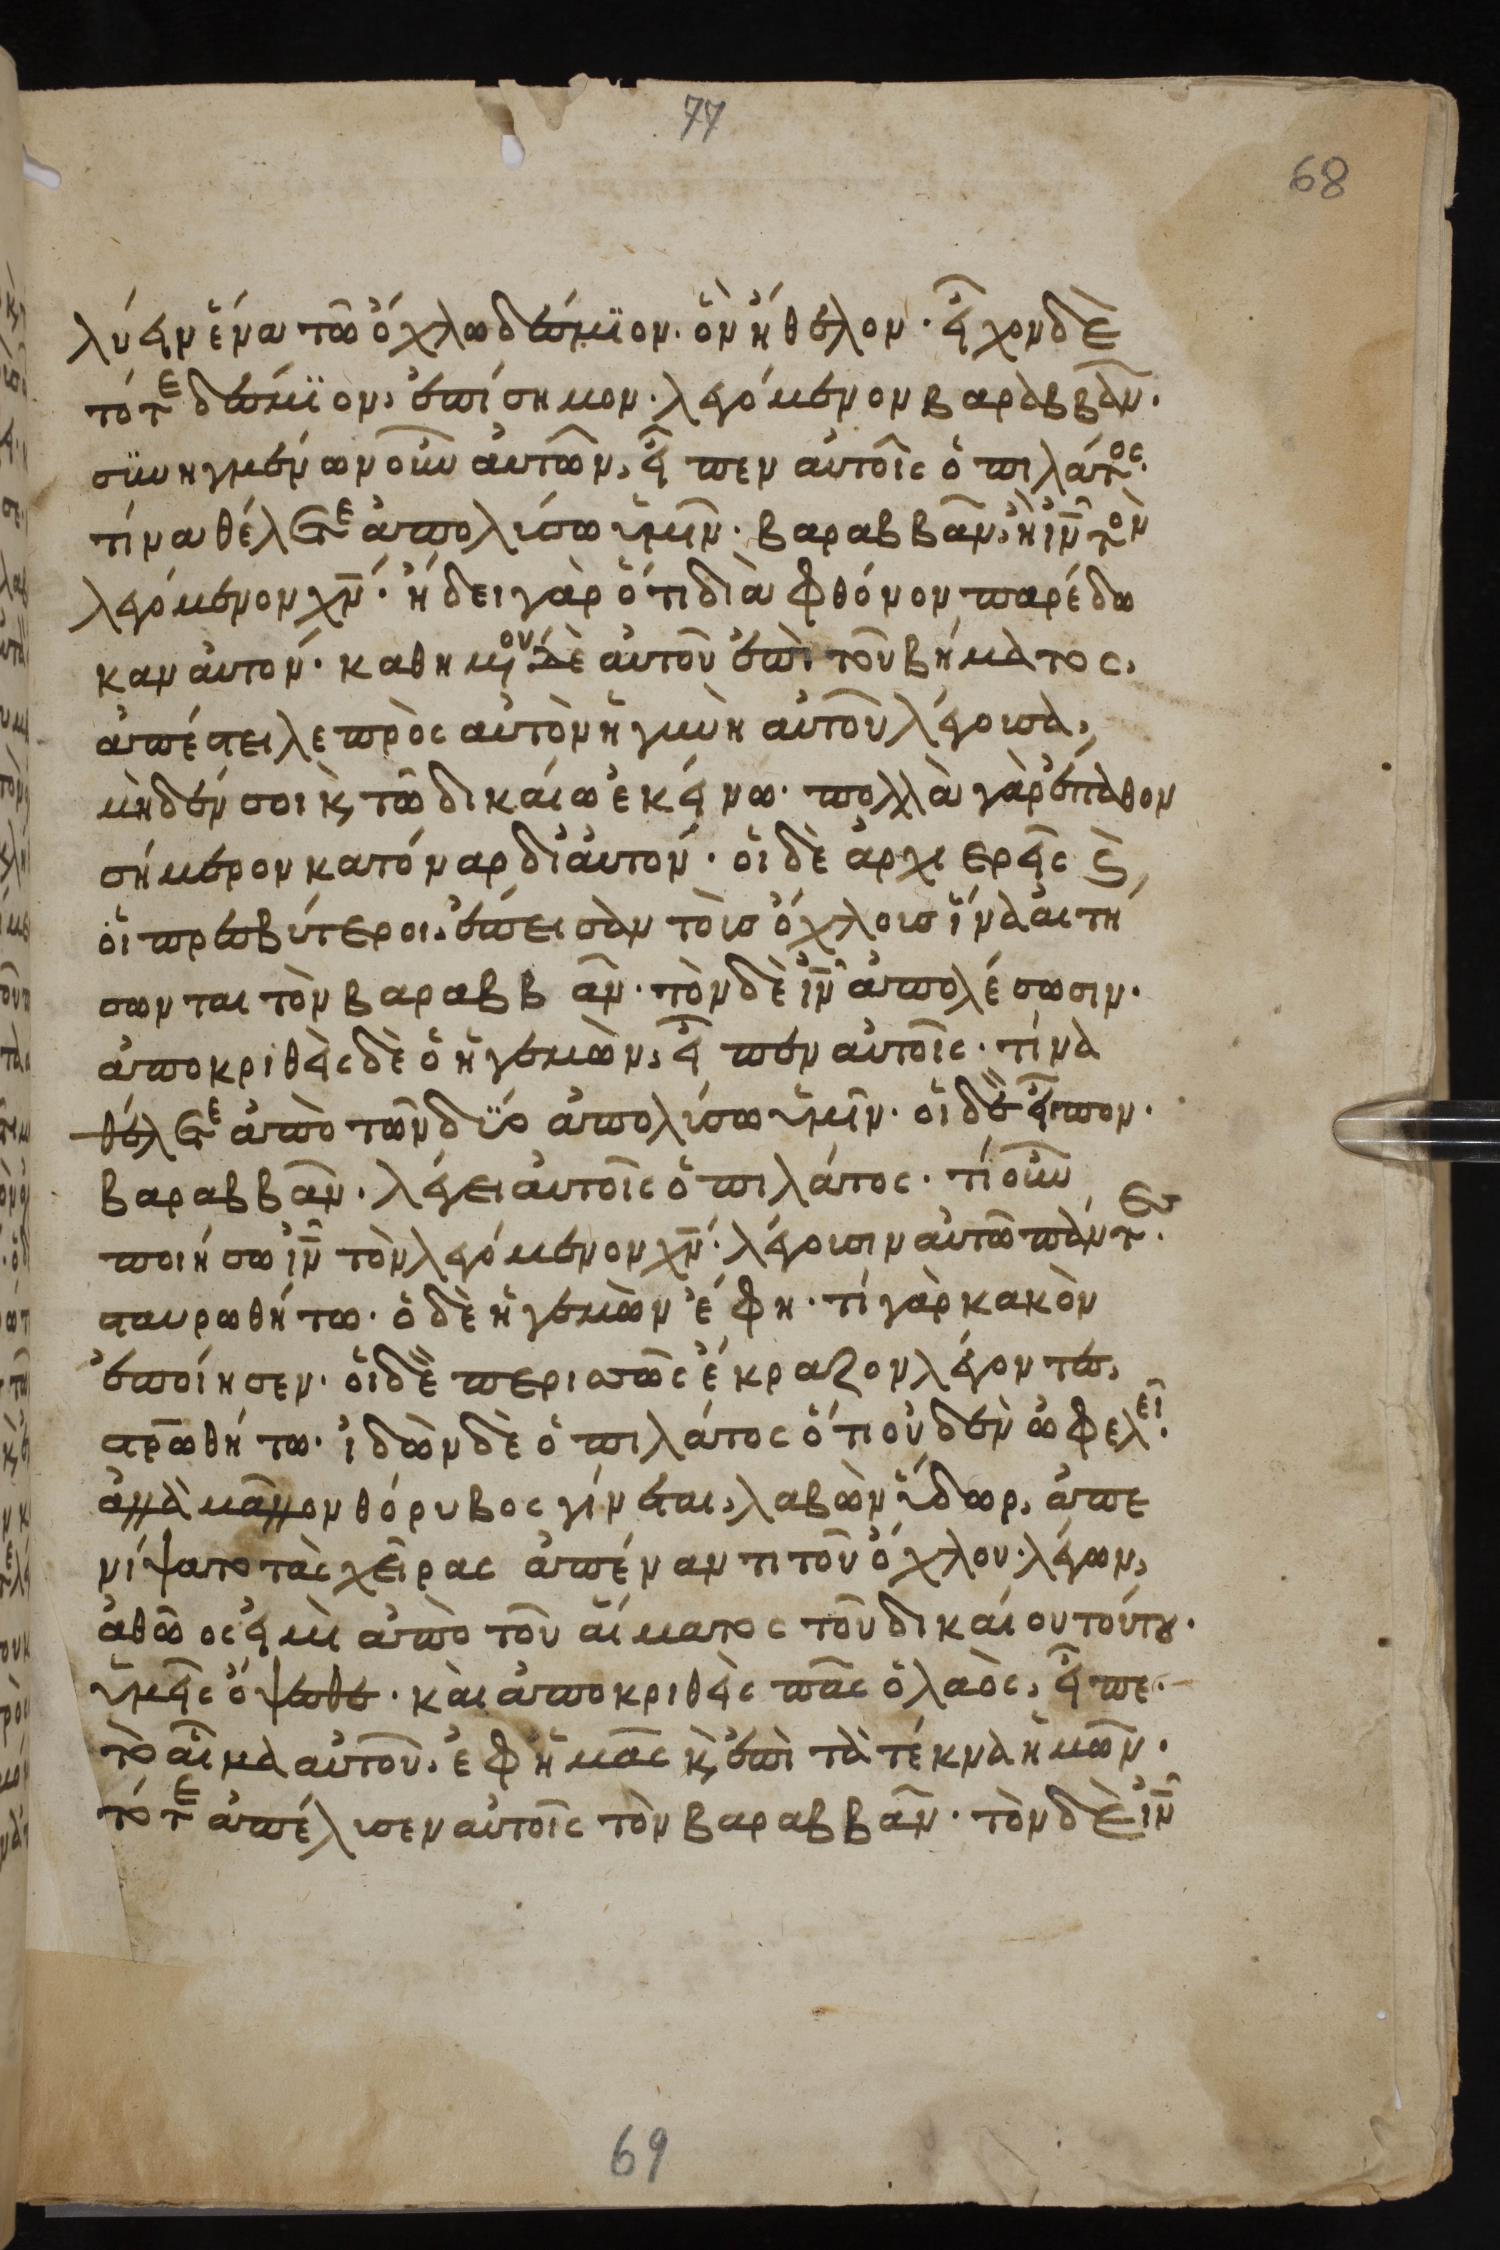 77
68
λύειν ἕνα τῶ ὄχλω δέσμϊον. ὃν ἤθελον. εἶχον δὲ
τότε δέσμϊον, ἐπίσημον. λεγόμενον βαραββᾶν.
συνηγμένων οὖν αὐτῶν, εἶπεν αὐτοῖς ὁ πιλάτος.
τίνα θέλετε ἀπολύσω ὑμῖν. βαραββᾶν, ἢ ἰν τὸν
λεγόμενον χν. ἤδει γὰρ ὅτι διὰ φθόνον παρέδω
καν αὐτόν. καθημένου δὲ αὐτοῦ ἐπὶ τοῦ βήματος,
ἀπέστειλε πρὸς αὐτὸν ἡ γυνὴ αὐτοῦ λέγουσα,
μηδέν σοι κ τῶ δικαίω ἐκείνω. πολλὰ γὰρ ἔπαθον
σήμερον κατόναρ δι αὐτόν. οἱ δὲ ἀρχιερεῖς κ
οἱ πρεσβύτεροι, ἔπεισαν τοὺς ὄχλους ἵνα αἰτή
σωνται τὸν βαραββᾶν. τὸν δὲ ἰν ἀπολέσωσιν.
ἀποκριθεὶς δὲ ὁ ἡγεμὼν, εἶπεν αὐτοῖς. τίνα
θέλετε ἀπὸ τῶν δϋο ἀπολύσω ὑμῖν. οἱ δὲ εἶπον.
βαραββᾶν. λέγει αὐτοῖς ὁ πιλάτος. τί οὖν
ποιήσω ἰν τὸν λεγόμενον χν. λέγουσιν αὐτῶ πάντες.
σταυρωθήτω. ὁ δὲ ἡγεμὼν ἔφη. τί γὰρ κακὸν
ἐποίησεν. οἱ δὲ περισσῶς ἔκραζον λέγοντες,
στρωθήτω. ἰδὼν δὲ ὁ πιλάτος ὅτι οὐδὲν ὠφελεῖ.
ἀλλὰ μᾶλλον θόρυβος γίνεται, λαβὼν ὕδωρ, ἀπε
νίψατο τὰς χεῖρας ἀπέναντι τοῦ ὄχλου. λέγων,
ἀθῶος εἰμὶ ἀπὸ τοῦ αἵματος τοῦ δικαίου τούτου.
ὑμεῖς ὄψεσθε. καὶ ἀποκριθεὶς πᾶς ὁ λαὸς, εἶπε.
τὸ αἷμα αὐτοῦ, ἐφ ἡμᾶς κ ἐπὶ τὰ τέκνα ἡμῶν.
τότε ἀπέλυσεν αὐτοῖς τὸν βαραββᾶν. τὸν δὲ ἰν
69